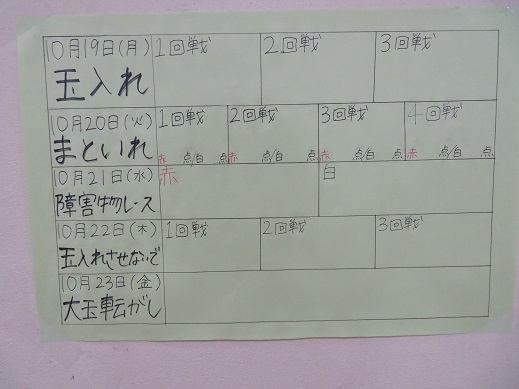 10月19日(月) 1回戦 2回戦 3回戦
玉入れ
10月20日(火) 1回戦 2回戦 3回戦 4回戦
まといれ 赤 点/白 点 赤 点/白 点 赤 点/白 点 赤 点/白 点
10月21日(水) 赤 白
障害物レース
10月22日(木) 1回戦 2回戦 3回戦
玉入れさせないで
10月23日(金)
大玉転がし